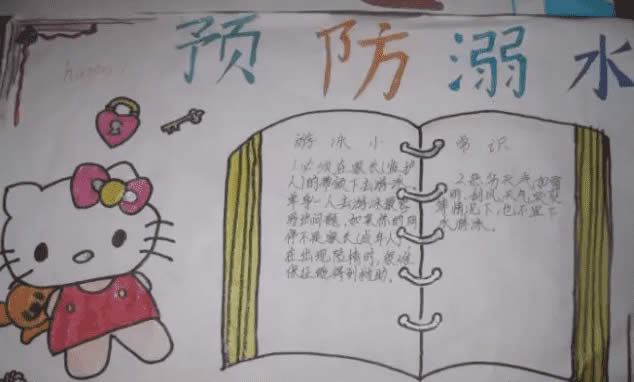 预防溺水
happy
游泳小常识
1.必须在家长(监护
人)的带领下去游泳。
单身一人去游泳最容
易出问题,如果你的同
伴不是家长(成年人),
在出现险情时,很难
保证能得到救助。
2.恶劣天气如雷
雨、刮风、天气突变
等情况下,也不宜下
水游泳。